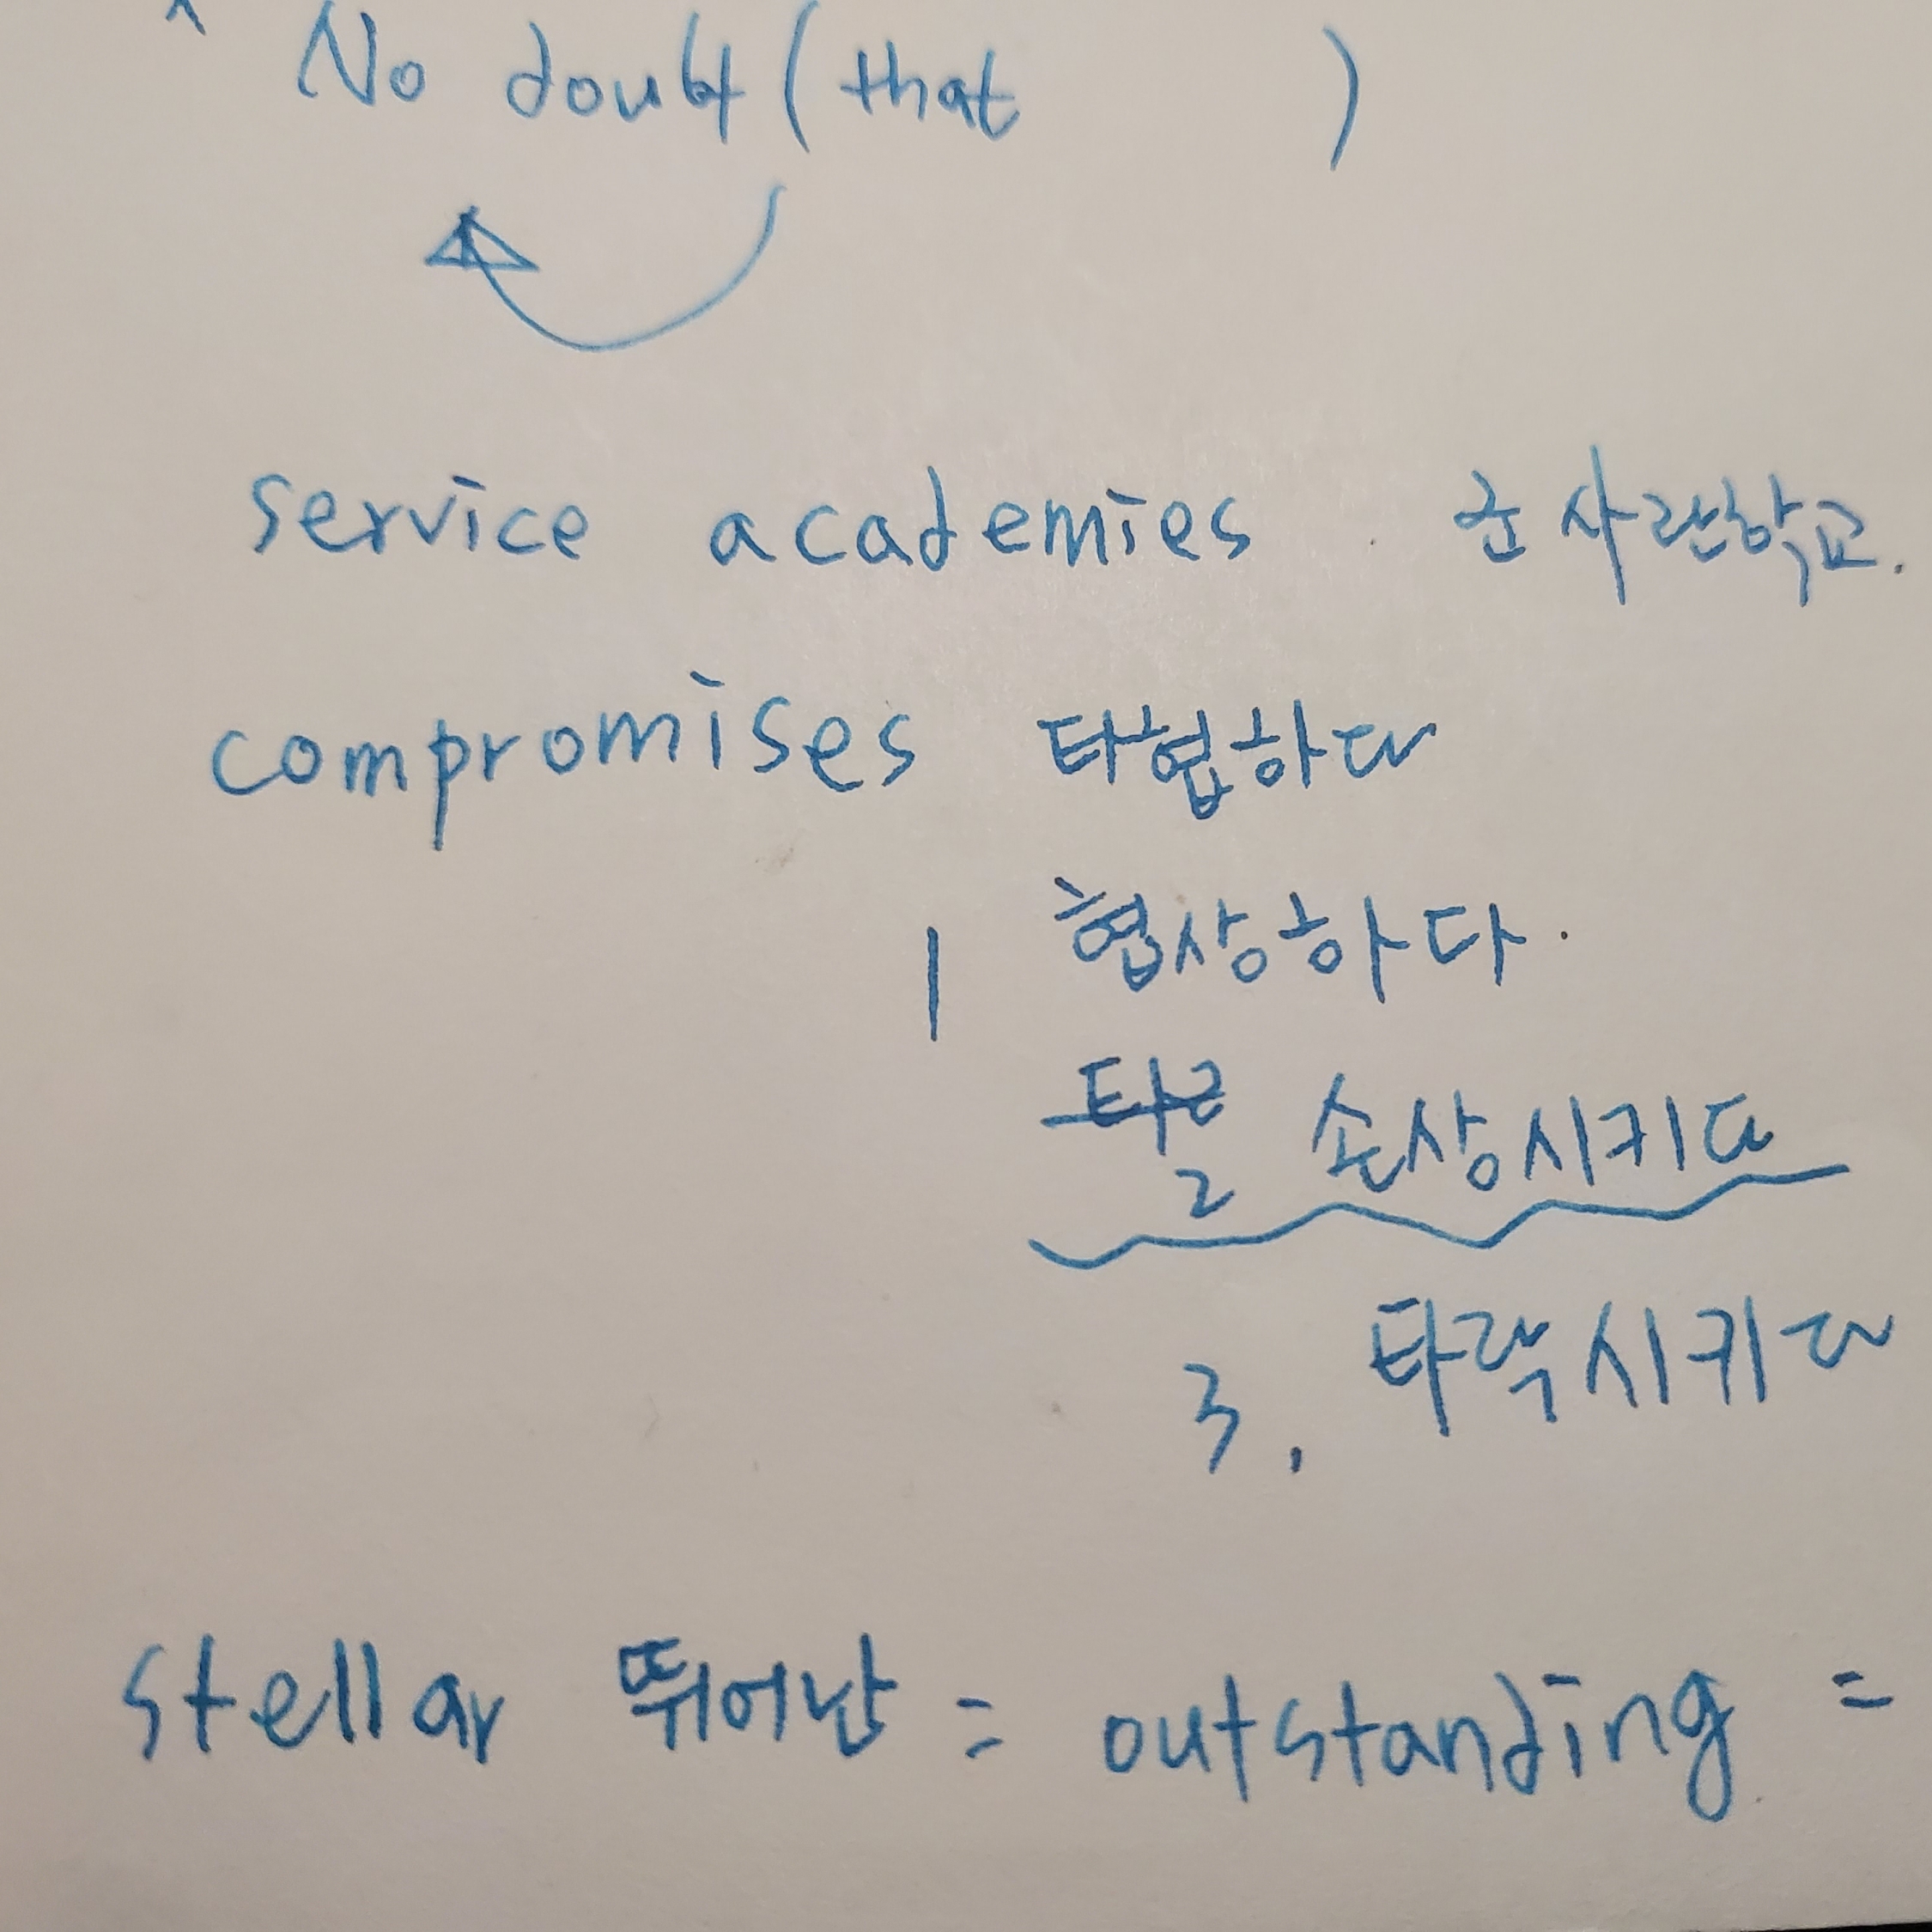 No doubt (that )
service academies 군사관학교.
compromises 타협하다
1 협상하다.
2 손상시키다
3. 타락시키다
stellar 뛰어난 = outstanding =